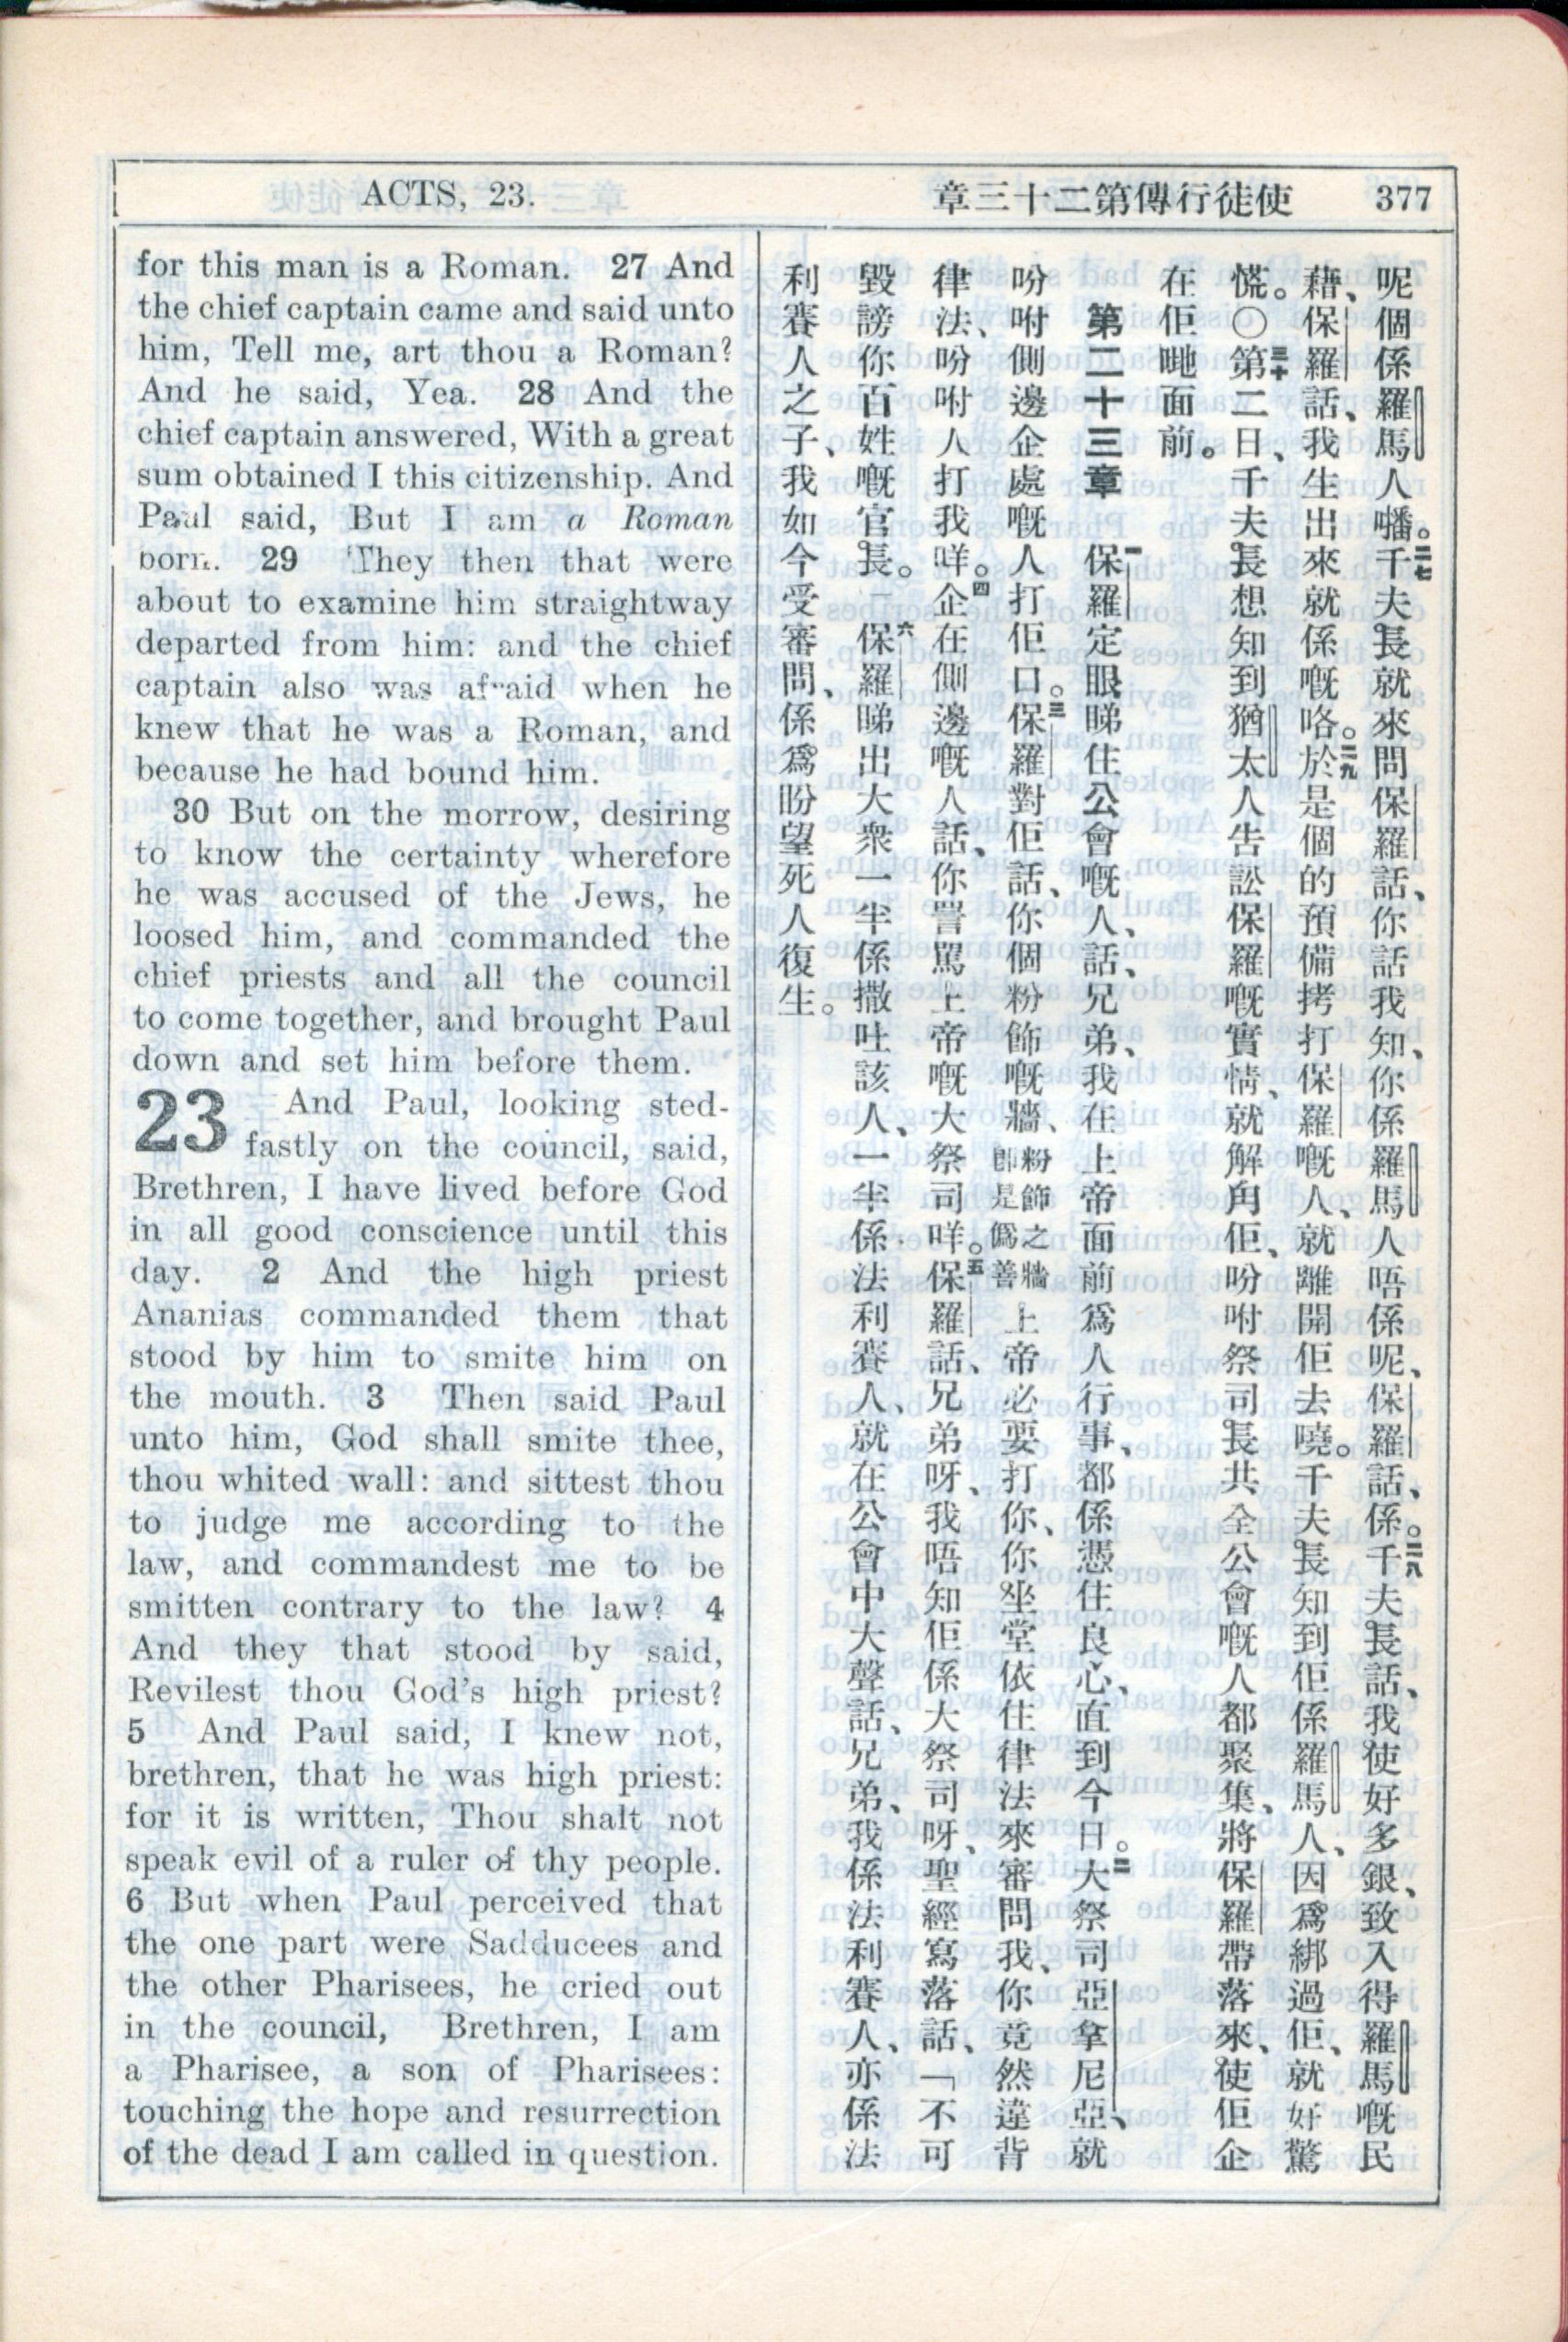 ACTS, 23.
使徒行傳第二十三章 377
for this man is a Roman. 27 And
the chief captain came and said unto
him, Tell me, art thou a Roman?
And he said, Yea. 28 And the
chief captain answered, With a great
sum obtained I this citizenship. And
Paul said, But I am a Roman
born. 29 They then that were
about to examine him straightway
departed from him: and the chief
captain also was afraid when he
knew that he was a Roman, and
because he had bound him.
30 But on the morrow, desiring
to know the certainty wherefore
he was accused of the Jews, he
loosed him, and commanded the
chief priests and all the council
to come together, and brought Paul
down and set him before them.
23 And Paul, looking sted-
fastly on the council, said,
Brethren, I have lived before God
in all good conscience until this
day. 2 And the high priest
Ananias commanded them that
stood by him to smite him on
the mouth. 3 Then said Paul
unto him, God shall smite thee,
thou whited wall: and sittest thou
to judge me according to the
law, and commandest me to be
smitten contrary to the law? 4
And they that stood by said,
Revilest thou God's high priest?
5 And Paul said, I knew not,
brethren, that he was high priest:
for it is written, Thou shalt not
speak evil of a ruler of thy people.
6 But when Paul perceived that
the one part were Sadducees and
the other Pharisees, he cried out
in the council, Brethren, I am
a Pharisee, a son of Pharisees:
touching the hope and resurrection
of the dead I am called in question.
呢個係羅馬人噃。二七千夫長就來問保羅話、你話我知、你係羅馬人唔係呢、保羅話、係。二八千夫長話、我使好多銀、致入得羅馬嘅民
藉、保羅話、我生出來就係嘅咯。二九於是個的預備拷打保羅嘅人、就離開佢去嘵。千夫長知到佢係羅馬人、因爲綁過佢、就好驚
慌。○三十第二日、千夫長想知到猶太人告訟保羅嘅實情、就解角佢、吩咐祭司長共全公會嘅人都聚集、將保羅帶落來、使佢企
在佢哋面前。
第二十三章 一保羅定眼睇住公會嘅人、話、兄弟、我在上帝面前爲人行事、都係憑住良心、直到今日。二大祭司亞拿尼亞、就
吩咐側邊企處嘅人打佢口。三保羅對佢話、你個粉飾嘅牆、粉飾之牆卽是僞善上帝必要打你、你坐堂依住律法來審問我、你竟然違背
律法、吩咐人打我咩。四企在側邊嘅人話、你詈罵上帝嘅大祭司咩。五保羅話、兄弟呀、我唔知佢係大祭司呀、聖經寫落話、「不可
毀謗你百姓嘅官長。六保羅睇出大衆一半係撒吐該人、一半係法利賽人、就在公會中大聲話、兄弟、我係法利賽人、亦係法
利賽人之子、我如今受審問、係爲盼望死人復生。